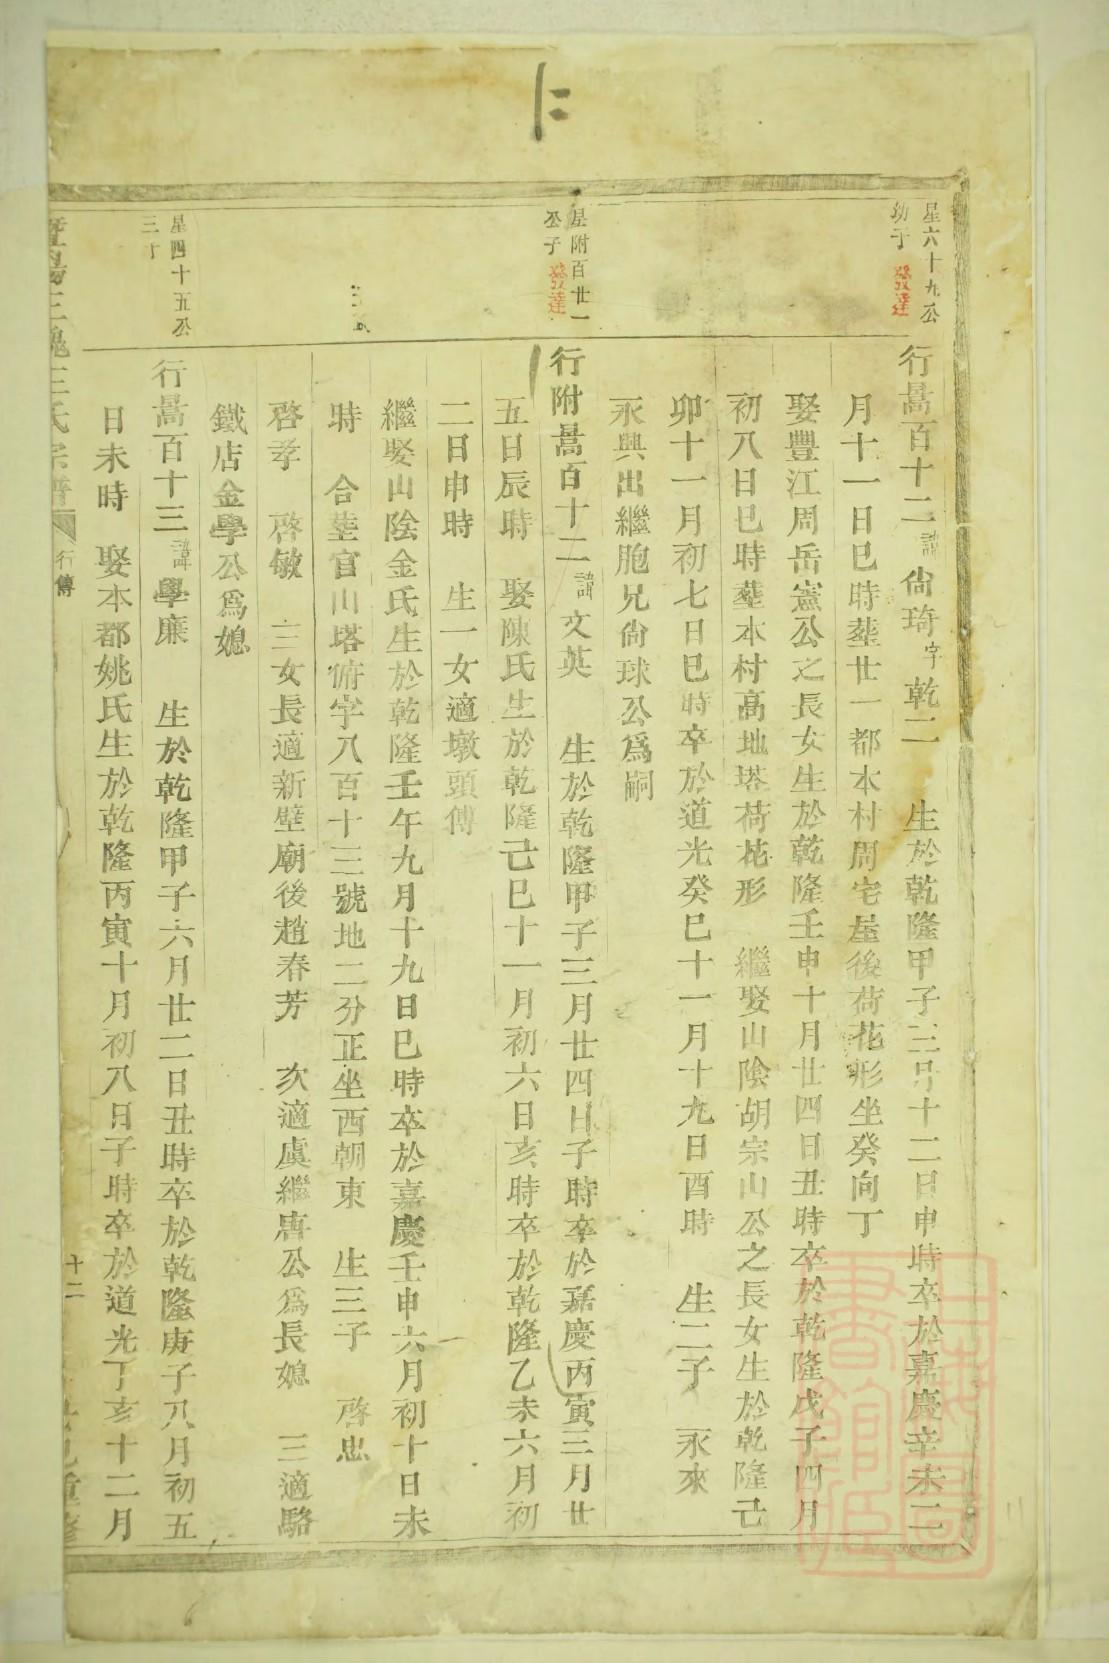 星六十九公
幼子 發達
行暠百十二諱尙琦字乾二 生於乾隆甲子三月十二日申時卒於嘉慶辛未二
月十一日巳時葬廿一都本村周宅屋後荷花形坐癸向丁
娶豐江周岳憲公之長女生於乾隆壬申十月廿四日丑時卒於乾隆戊子四月
初八日巳時葬本村高地塔荷花形 繼娶山陰胡宗山公之長女生於乾隆己
卯十一月初七日巳時卒於道光癸巳十一月十九日酉時 生二子 永來
永興出繼胞兄尙球公爲嗣
星附百廿一
公子 發達
行附暠百十二諱文英 生於乾隆甲子三月廿四日子時卒於嘉慶丙寅三月廿
五日辰時 娶陳氏生於乾隆己巳十一月初六日亥時卒於乾隆乙未六月初
二日申時 生一女適墩頭傅
繼娶山陰金氏生於乾隆壬午九月十九日巳時卒於嘉慶壬申六月初十日未
時 合葬官山塔俯字八百十三號地二分正坐西朝東 生三子 啓忠
啓孝 啓敏 三女長適新壁廟後趙春芳 次適虞繼唐公爲長媳 三適駱
鐵店金學公爲媳
星四十五公
三子
行暠百十三諱學廉 生於乾隆甲子六月廿二日丑時卒於乾隆庚子八月初五
日未時 娶本都姚氏生於乾隆丙寅十月初八日子時卒於道光丁亥十二月
暨陽三槐王氏宗譜 行傳 十二